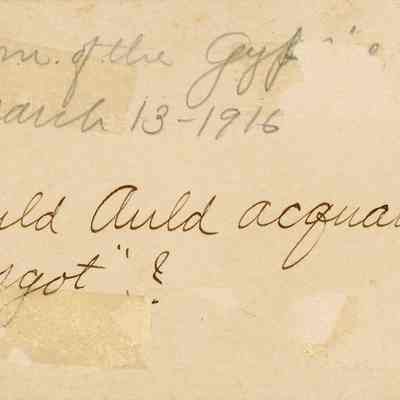 m. of the Gyp " "
arch 13-1916
uld Auld acqua
got" ?